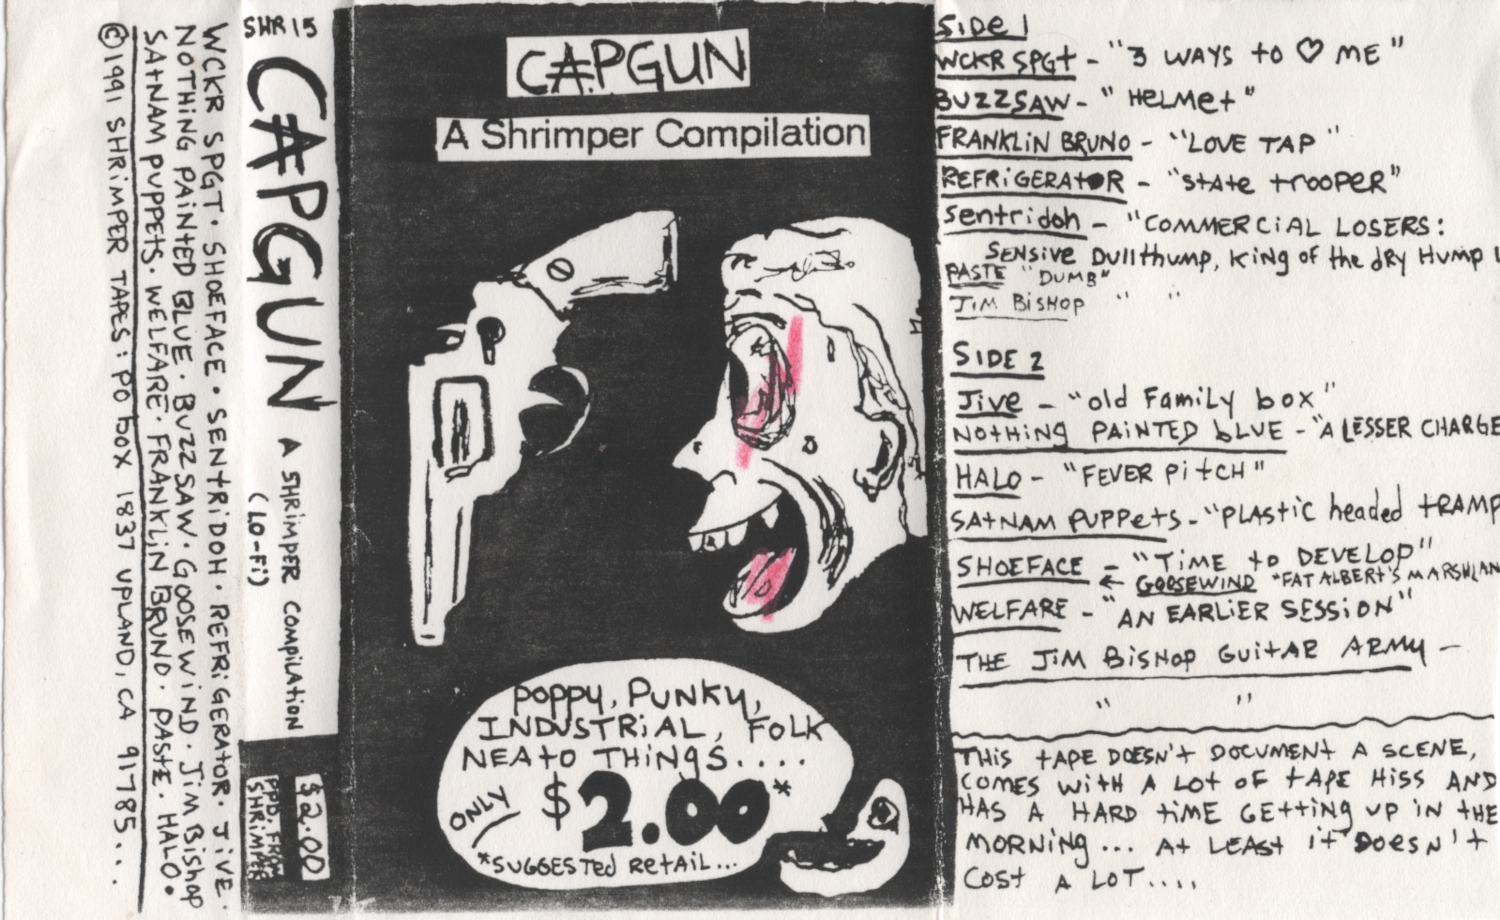 SHR 15
CAPGUN A SHRiMPER COMPiLATiON
(LO-Fi)
$2.00
PPD. FROM
SHRiMPER
WCKR SPGT · SHOEFACE · SENtRiDOH · REFRiGERATOR · JiVE ·
NOTHiNG PAiNtED BLUE · BUZZSAW · GOOSEWiND · JiM BiSHOP
SAtNAM PUPPETS · WELFARE · FRANKLiN BRUNO · PASTE · HALO •
©1991 SHRiMPER TAPES: PO box 1837 UPLAND, CA 91785...
CAPGUN
A Shrimper Compilation
POPPY, PUNKY,
INDUSTRiAL, FOLK
NEAtO THiNgS....
ONLY $2.00*
*SUGGEStEd REtAiL...
SiDe 1
WCKR SPGt - "3 WAYS to ♡ ME"
BUZZSAW - "HeLMet"
FRANKLiN BRUNO - "LOVE TAP"
REFRiGERAtOR - "StAte tROOPER"
Sentridoh - "COMMERCiAL LOSERS:
SENSive Dullthump, King of the dRy Hump
PASTE "DUMB"
JiM BiSHOP " "
SIDE 2
Jive - "old Family box"
NOtHiNg PAiNTED bLUE - "A LESSER CHARGE
HALO - "FEVER PitCH"
SAtNAM PUPPetS - "PLAStic headed tRAMP
SHOEFACE - "TiME to DEVELOP"
← GOOSEWIND "FAT ALBERt'S MARSHLAN
WELFARE - "AN EARLiER SESSiON"
THE JiM BiSHOP GUitAR ARMY -
" "
THiS tAPE DOESN't DOCUMENt A SCENE,
COMES WitH A LOt OF tAPE HiSS AND
HAS A HARD tiME GEttiNg UP iN tHE
MORNiNg... At LEASt it DoESN't
COSt A LOT....